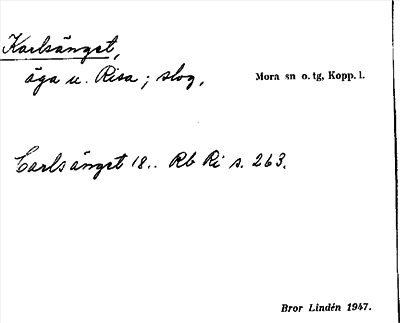 Karlsänget,
äga u. Risa; slog. Mora sn o. tg, Kopp. l.
Carlsänget 18.. Rb Ri s. 263.
Bror Lindén 1947.